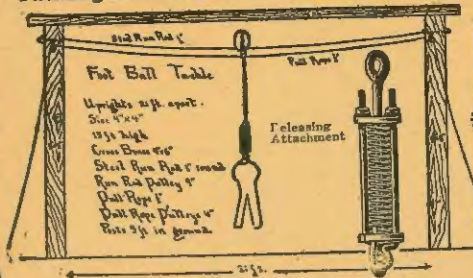 Steel Run Rod 1"
Pull Rope 1"
Foot Ball Tackle
Uprights 21 ft. apart.
Size 4"x4"
13 ft high
Cross Beam 4"x6"
Steel Run Rod 1" round
Run Rod Pulley 4"
Pull Rope 1"
Pull Rope Pulleys 4"
Posts 3 ft in ground
Releasing
Attachment
21 ft.